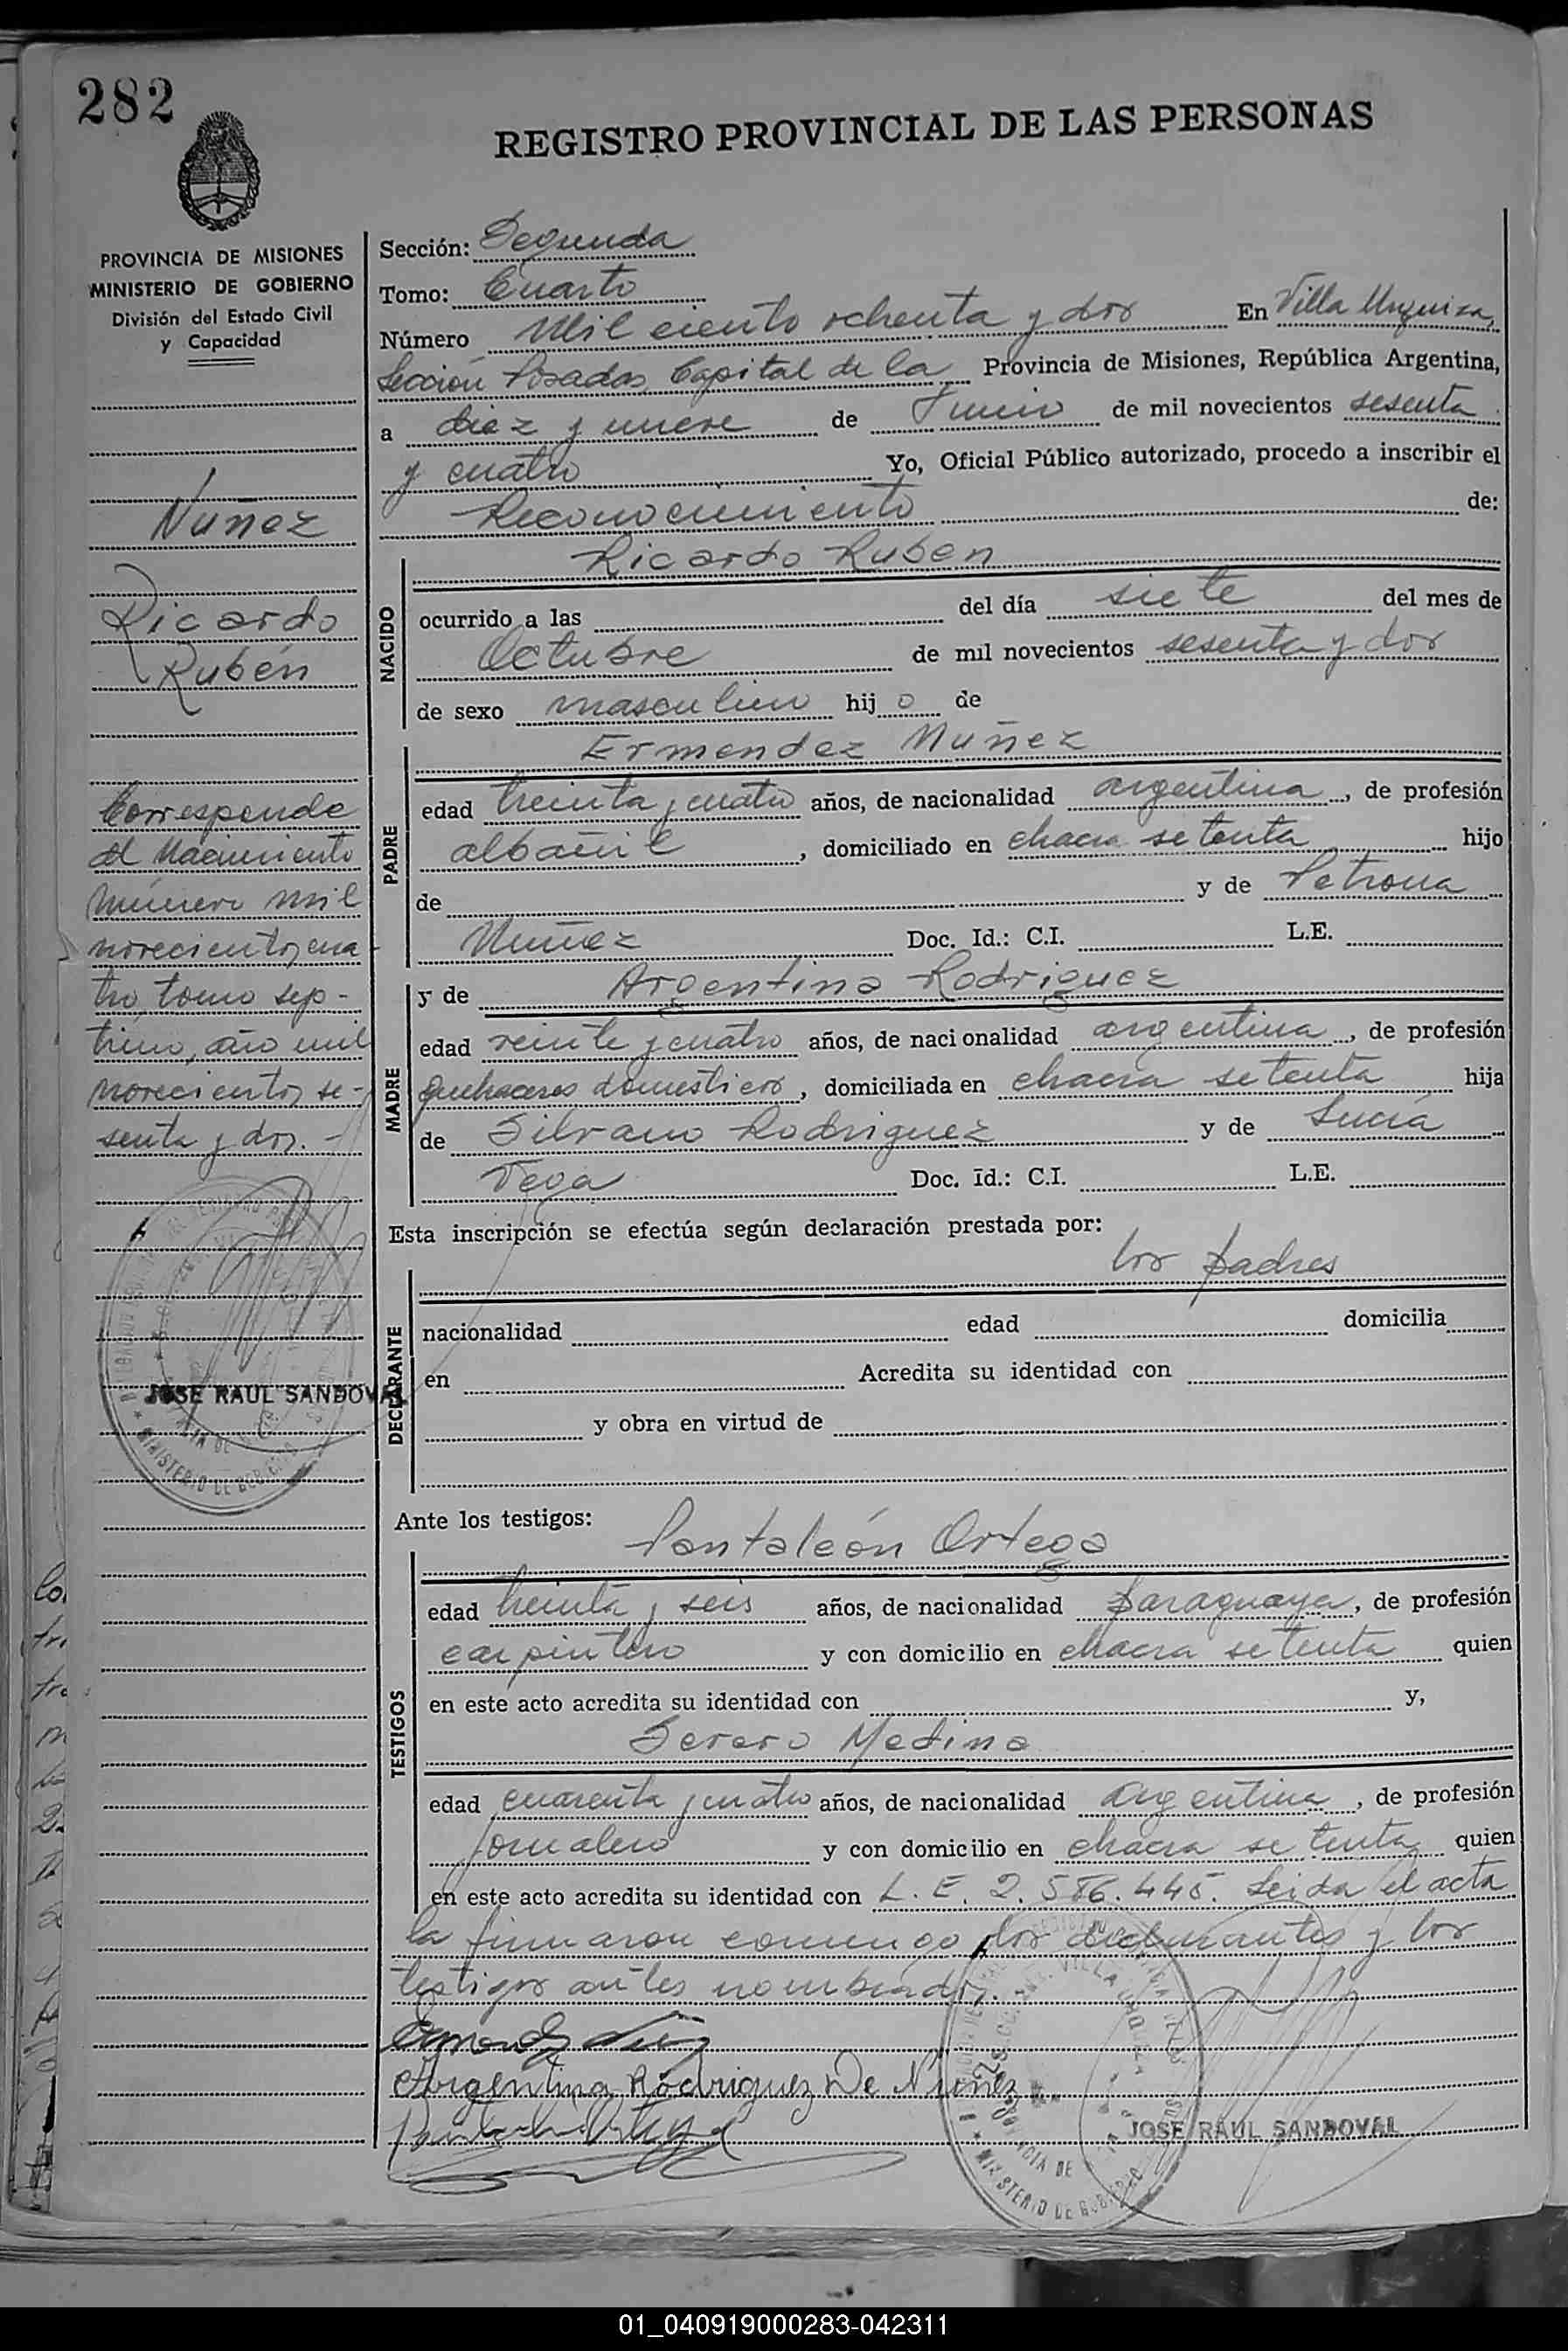 282
REGISTRO PROVINCIAL DE LAS PERSONAS
PROVINCIA DE MISIONES
MINISTERIO DE GOBIERNO
División del Estado Civil
y Capacidad
Nuñez
Ricardo
Rubén
Corresponde
al Nacimiento
número mil
novecientos cua-
tro, tomo sép-
timo, año mil
novecientos se-
senta y dos. -
JOSE RAUL SANDOVAL
Sección: Segunda
Tomo: Cuarto
Número Mil ciento ochenta y dos En Villa Urquiza,
Sección Posadas, Capital de la Provincia de Misiones, República Argentina,
a diez y nueve de Junio de mil novecientos sesenta
y cuatro Yo, Oficial Público autorizado, procedo a inscribir el
Reconocimiento de:
NACIDO
Ricardo Ruben
ocurrido a las del día siete del mes de
Octubre de mil novecientos sesenta y dos
de sexo masculino hij o de
PADRE
Ermendez Nuñez
edad treinta y cuatro años, de nacionalidad argentina, de profesión
albañil, domiciliado en chacra setenta hijo
de y de Petrona
Nuñez Doc. Id.: C.I. L.E.
MADRE
y de Argentina Rodriguez
edad veinte y cuatro años, de nacionalidad argentina, de profesión
quehaceres domesticos, domiciliada en chacra setenta hija
de Silvano Rodriguez y de Lucía
Vega Doc. Id.: C.I. L.E.
Esta inscripción se efectúa según declaración prestada por:
los padres
DECLARANTE
nacionalidad edad domicilia
en Acredita su identidad con
y obra en virtud de
Ante los testigos:
Pantaleón Ortega
TESTIGOS
edad treinta y seis años, de nacionalidad paraguaya, de profesión
carpintero y con domicilio en chacra setenta quien
en este acto acredita su identidad con y,
Severo Medina
edad cuarenta y cuatro años, de nacionalidad argentina, de profesión
jornalero y con domicilio en chacra setenta quien
en este acto acredita su identidad con L. E. 2.586.445. Leida el acta
la firmaron conmigo los declarantes y los
testigos antes nombrados.
Argentina Rodriguez De Nuñez
JOSE RAUL SANDOVAL
MINISTERIO DE GOBIERNO
01_040919000283-042311